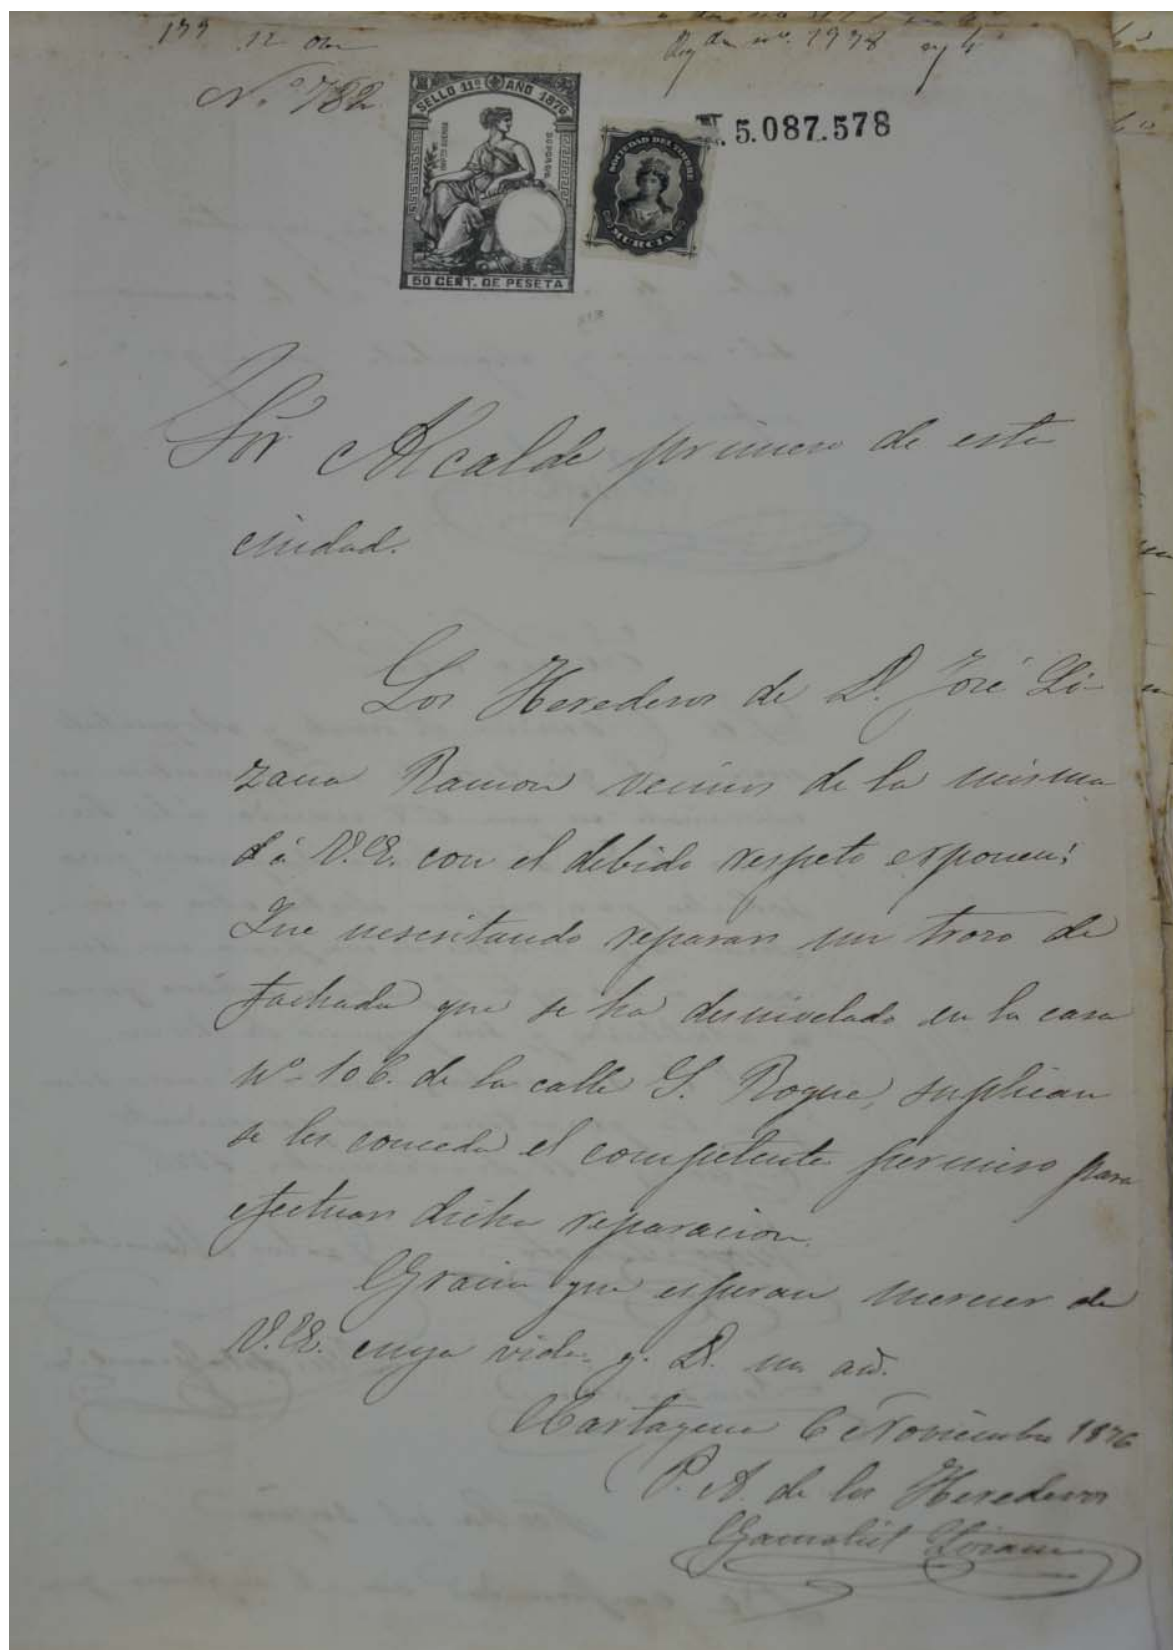 177
N.º 782
SELLO 11º AÑO 1876
50 CENT. DE PESETA
SOCIEDAD DEL TIMBRE
MURCIA
N. 5.087.578
Sor Alcalde primero de esta
ciudad.
Los Herederos de D. José Li-
zana Ramon vecinos de la misma
á V.E. con el debido respeto exponen:
Que nesesitando reparar un trozo de
fachada que se ha desnivelado en la casa
nº 106. de la calle S. Roque, suplican
se les conceda el competente permiso para
efectuar dicha reparacion.
Gracia que esperan merecer de
V.E. cuya vida g. D. ms. as.
Cartagena 6 Noviembre 1876
P. A. de los Herederos